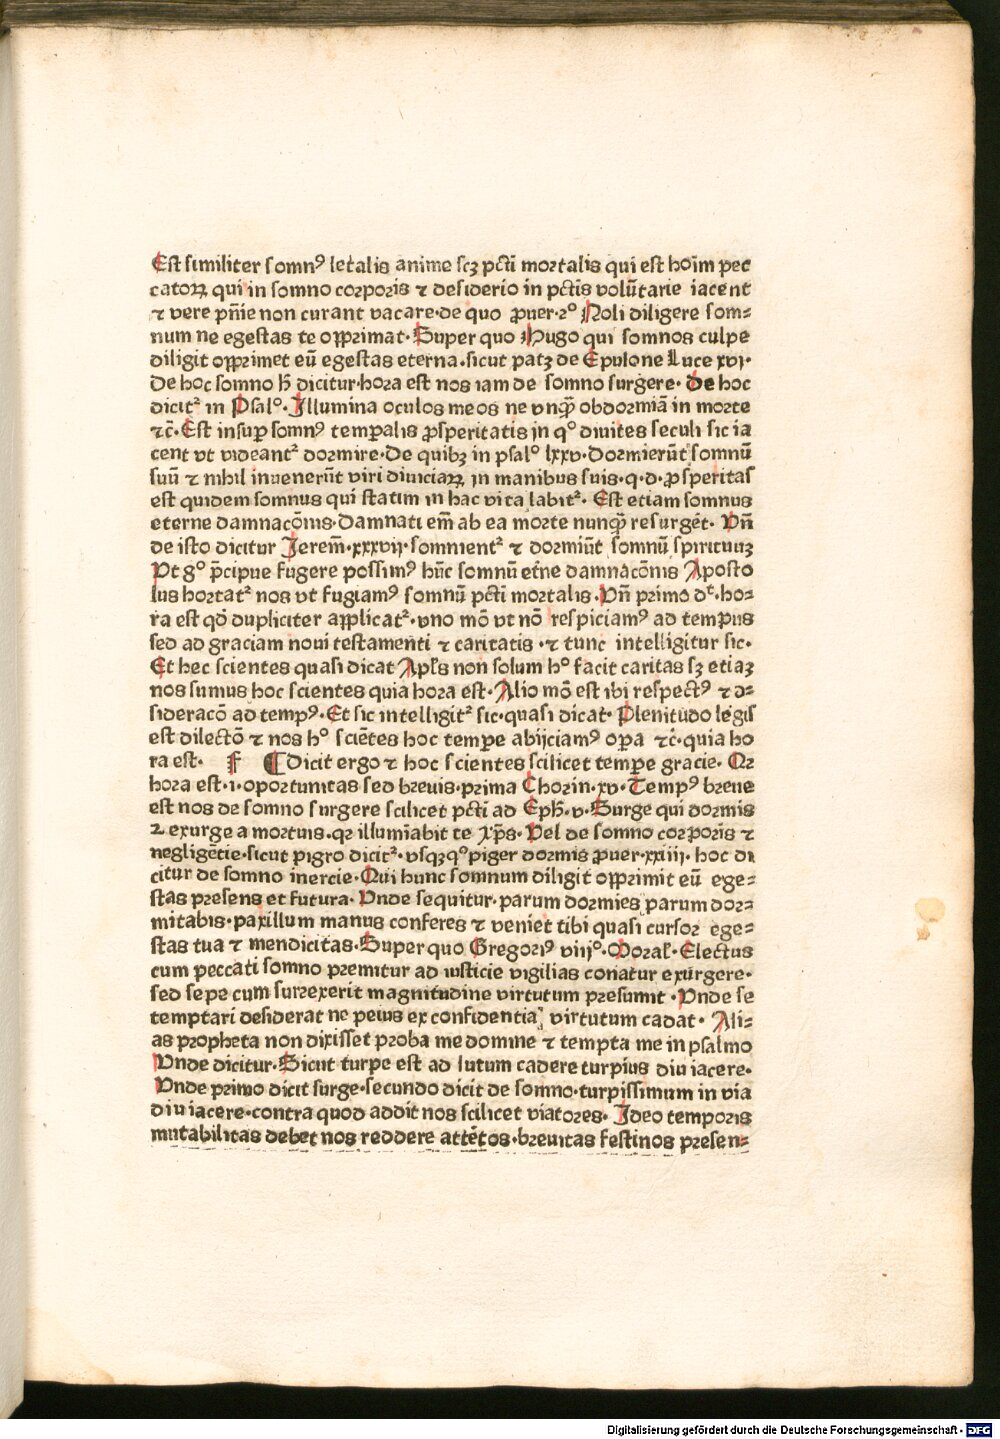 Est similiter somnꝰ letalis anime scꝫ pcti mortalis qui est hoim pec
catoꝝ qui in somno corporis ⁊ desiderio in pctis volūtarie iacent
⁊ vere pn̄ie non curant vacare·de quo ꝓuer·2° Noli diligere som⸗
num ne egestas te opprimat·Super quo Hugo qui somnos culpe
diligit opprimet eū egestas eterna·sicut patꝫ de Epulone Luce xvi·
De hoc somno hͥ dicitur·hora est nos iam de somno surgere· De hoc
dicitᷣ in Psal°·Illumina oculos meos ne vnqꝫ̄ obdormiā in morte
⁊c̄·Est insuꝑ somnꝰ temꝑalis ꝓsperitatis in q° diuites seculi sic ia
cent vt videantᷣ dormire·De quibꝫ in psal° lxxv·Dormierūt somnū
suū ⁊ nihil inuenerūt viri diuiciaꝝ in manibus suis·q·d·ꝓsperitas
est quidem somnus qui statim in hac vita labitᷣ· Est etiam somnus
eterne damnacōnis·Damnati em̄ ab ea morte nunqꝫ̄ resurgēt· Vn̄
de isto dicitur Jerem̄·xxxvij·somnientᷣ ⁊ dormiūt somnū spirituuꝫ
Vt g° p̄cipue fugere possimꝰ hūc somnū et̄ne damnacōnis Aposto
lus hortatᷣ nos vt fugiamꝰ somnū pcti mortalis·Vn̄ primo dᵗ·ho⸗
ra est qd̄ dupliciter applicatᷣ·vno mō vt nō respiciamꝰ ad tempus
sed ad graciam noui testamenti ⁊ caritatis·⁊ tunc intelligitur sic·
Et hec scientes quasi dicat Apl̄s non solum h° facit caritas sꝫ etiaꝫ
nos sumus hoc scientes quia hora est·Alio mō est ibi respectꝰ ⁊ ꝯ⸗
sideracō ad tempꝰ·Et sic intelligitᷣ sic·quasi dicat· Plenitudo legis
est dilectō ⁊ nos h° sciētes hoc temꝑe abijciamꝰ oꝑa ⁊c̄·quia ho
ra est· F ¶Dicit ergo ⁊ hoc scientes scilicet temꝑe gracie· Qꝛ
hora est·i·oportunitas sed breuis·prima Chorin·xv·Tempꝰ breue
est nos de somno surgere scilicet pcti ad Eph̄·v·Surge qui dormis
⁊ exurge a mortuis·qꝛ illumīabit te xp̄s· Vel de somno corporis ⁊
negligētie·sicut pigro dicitᷣ·vsqꝫq°piger dormis ꝓuer·xxiiij· hoc di
citur de somno inercie·Qui hunc somnum diligit opprimit eū ege⸗
stas presens et futura· Vnde sequitur·parum dormies parum dor⸗
mitabis·paxillum manus conferes ⁊ veniet tibi quasi cursor ege⸗
stas tua ⁊ mendicitas·Super quo Gregoriꝰ viij°·Moral̄·Electus
cum peccati somno premitur ad iusticie vigilias conatur exurgere·
sed sepe cum surrexerit magnitudine virtutum presumit·Vnde se
temptari desiderat ne peius ex confidentia virtutum cadat· Ali⸗
as propheta non dixisset proba me domine ⁊ tempta me in psalmo
Vnde dicitur·Sicut turpe est ad lutum cadere turpius diu iacere·
Vnde primo dicit surge·secundo dicit de somno·turpissimum in via
diu iacere·contra quod addit nos scilicet viatores· Ideo temporis
mutabilitas debet nos reddere attētos·breuitas festinos presen⸗
Digitalisierung gefördert durch die Deutsche Forschungsgemeinschaft - DFG